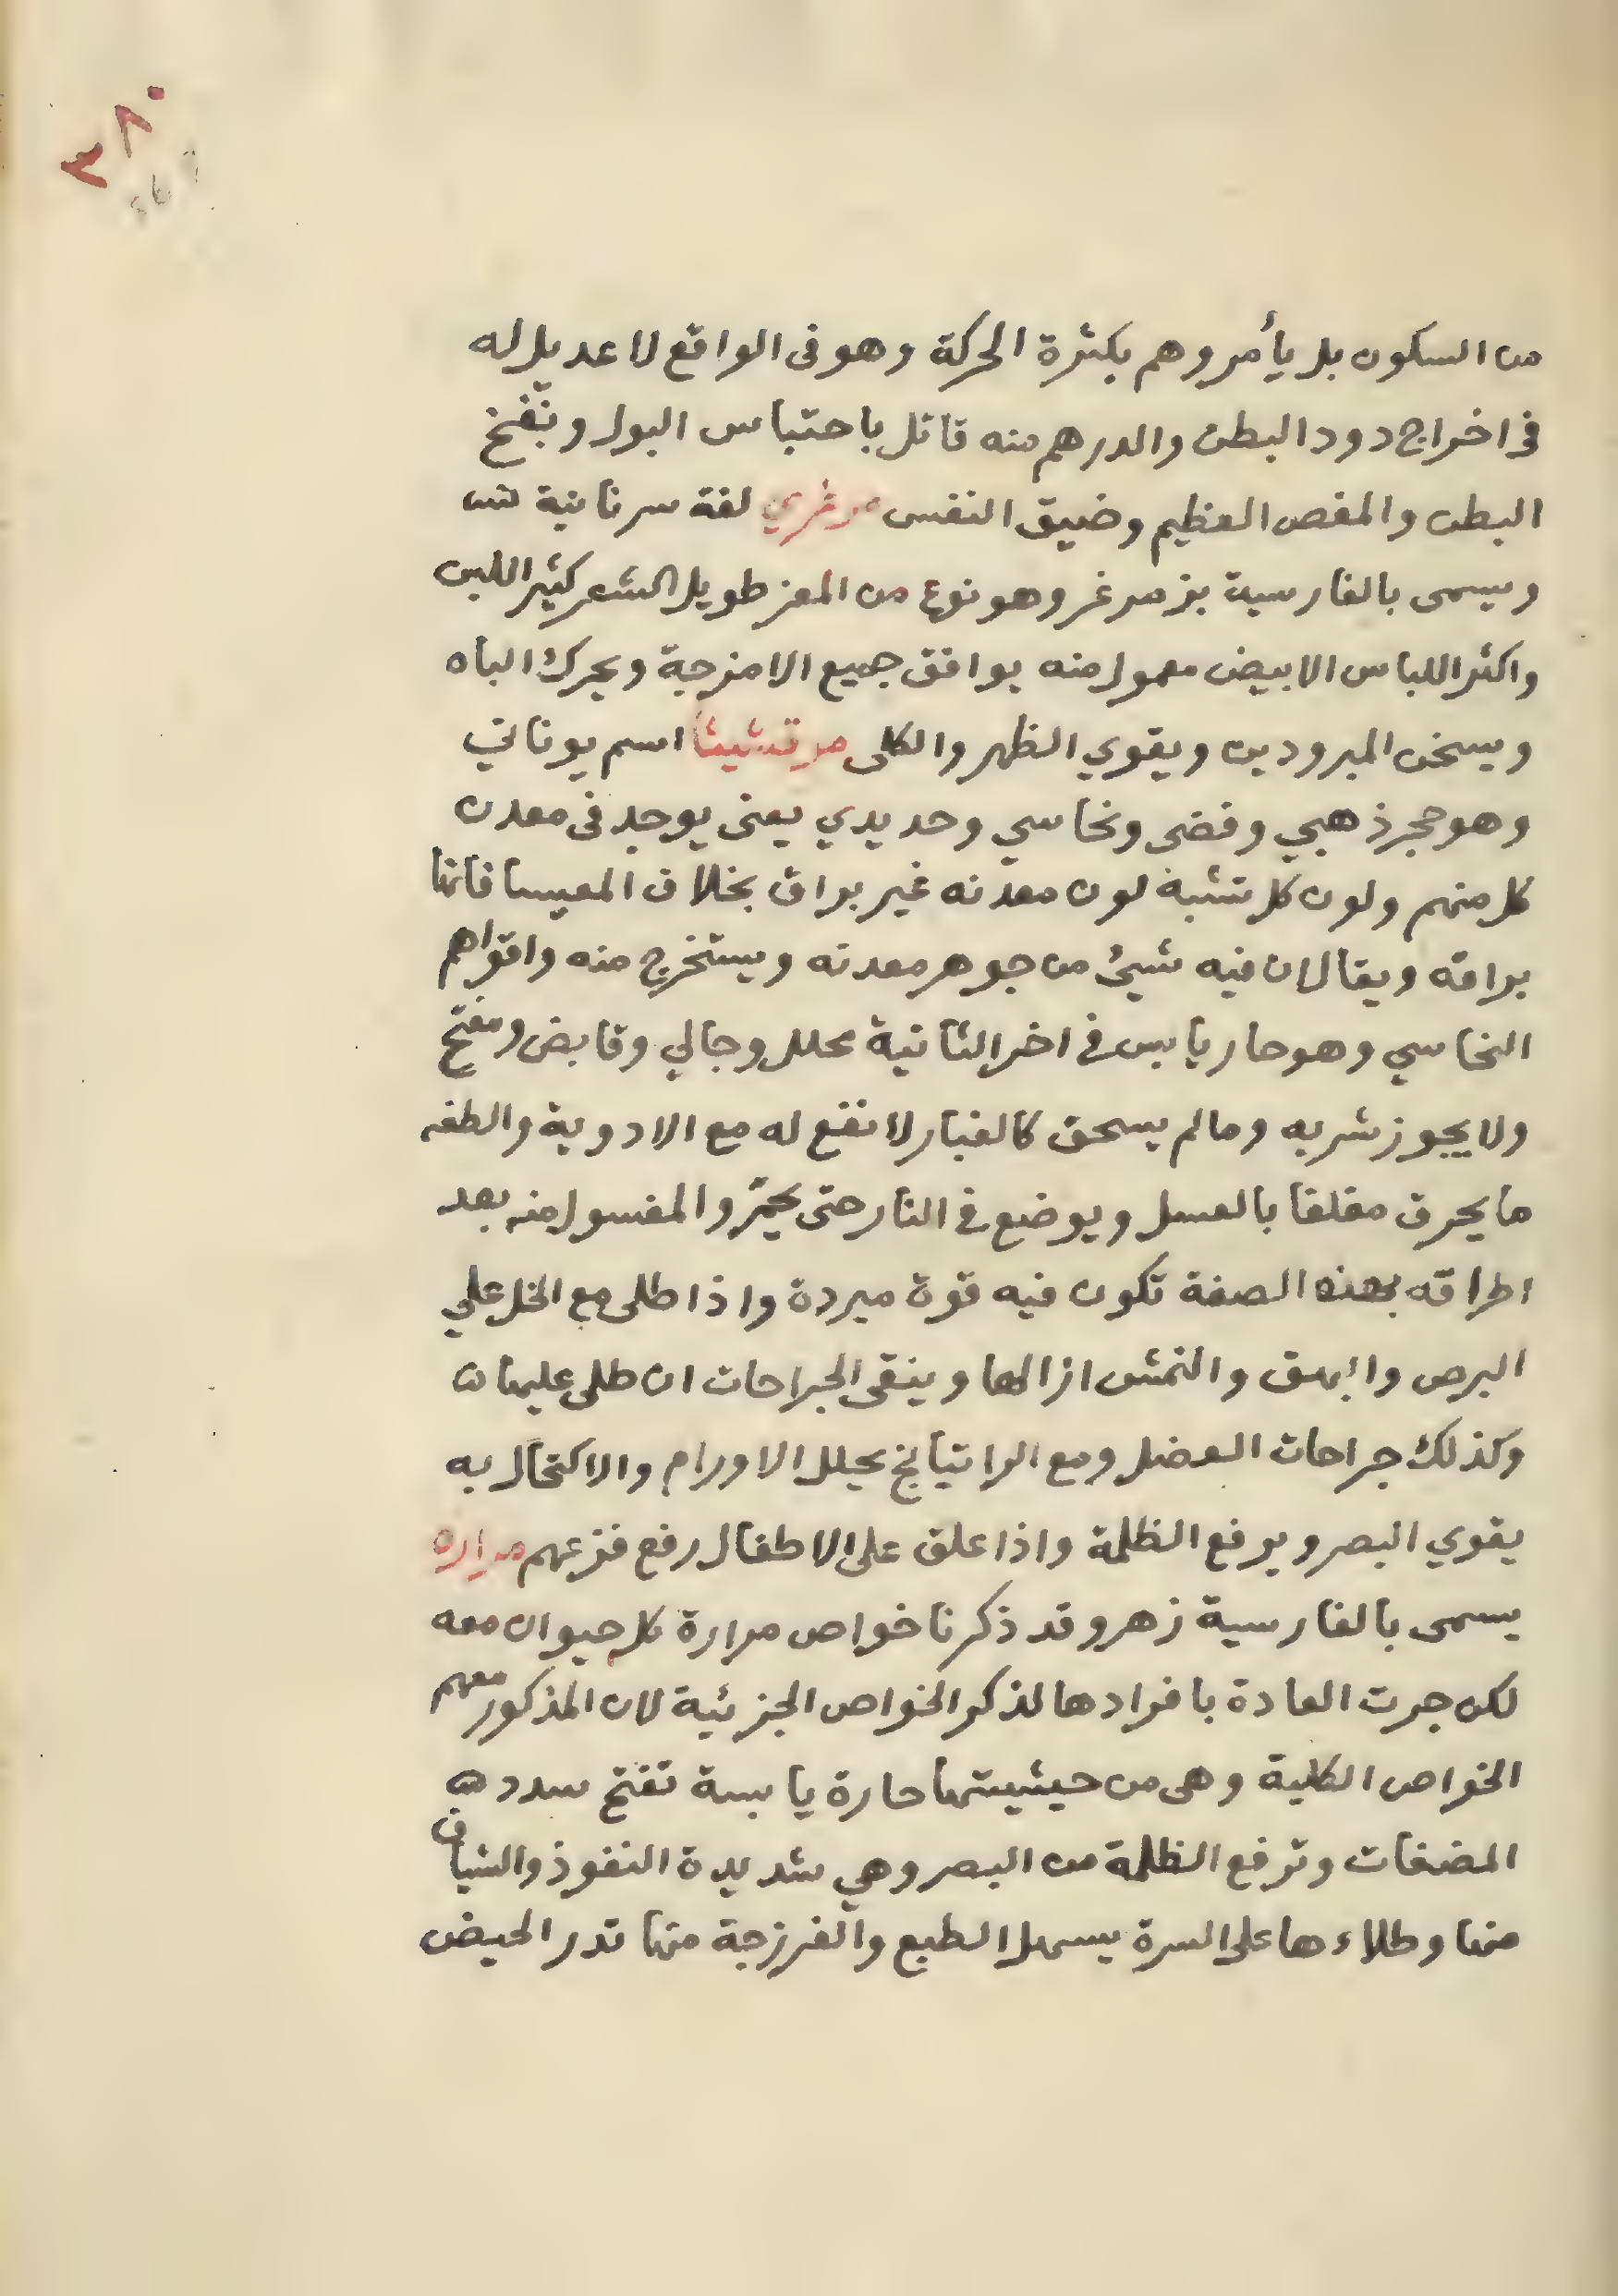 ٣٨٠
من السكون بل يأمروهم بكثرة الحركة وهو فى الواقع لا عديل له
فى اخراج دود البطن والدرهم منه قاتل باحتباس البول وتنفخ
البطن والمغص العظيم وضيق النفس مرغزي لغة سريانية
ويسمى بالفارسية بزمرغز وهو نوع من المعز طويل الشعر كثير اللبن
واكثر اللباس الابيض معمول منه يوافق جميع الامزجة ويحرك الباه
ويسخن المبرودين ويقوي الظهر والكلى مرقشيثا اسم يوناني
وهو حجر ذهبي وفضى ونحاسي وحديدي يعنى يوجد فى معدن
كل منهم ولون كل تشبه لون معدنه غير براق بخلاف المغيسا فانها
براقه ويقال ان فيه شيئ من جوهر معدنه ويستخرج منه واقواهم
النحاسي وهو حار يابس فى اخر الثانية محلل وجالي وقابض ومفتح
ولا يجوز شربه ومالم يسحق كالغبار لا نفع له مع الادوية والطفه
ما يحرق مغلفا بالعسل ويوضع فى النار حتى يحمّر والمغسول منه بعد
احراقه بهذه الصفة تكون فيه قوة مبردة واذا طلى مع الخل علي
البرص والبهق والنمش ازالها وينقى الجراحات ان طلى عليها
وكذلك جراحات العضل ومع الراتيانج يحلل الاورام والاكتحال به
يقوي البصر ويرفع الظلمة واذا علق على الاطفال رفع فزعهم مراره
يسمى بالفارسية زهر وقد ذكرنا خواص مرارة كل حيوان معه
لكن جرت العادة بافرادها لذكر الخواص الجزئية لان المذكور معهم
الخواص الكلية وهى من حيثيتها حارة يابسة تفتح سدد
المضغات وترفع الظلمة من البصر وهي شديدة النفوذ والشياف
منها وطلاءها على السرة يسهل الطبع والفرزجة منها تدر الحيض